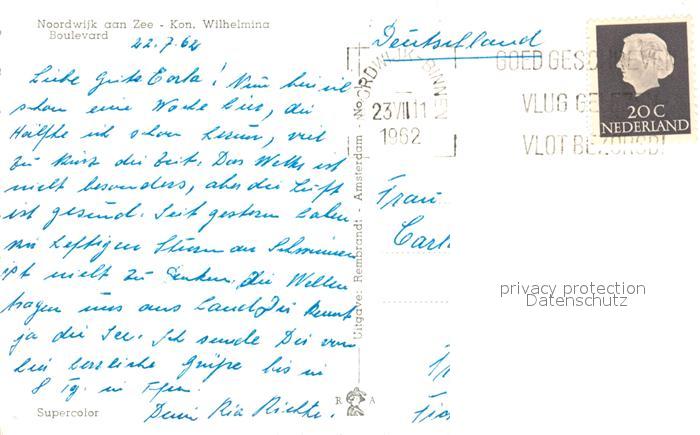 Noordwijk aan Zee - Kon. Wilhelmina
Boulevard
22.7.62
Liebe gute Carla! Nun bin ich
schon eine Woche hier, die
Hälfte ist schon herum, viel
zu kurz die Zeit. Das Wetter ist
nicht besonders, aber die Luft
ist gesund. Seit gestern haben
wir heftigen Sturm an Schwimmen
ist nicht zu denken, die Wellen
tragen uns ans Land, Du kennst
ja die See. Ich sende Dir von
hier herzliche Grüße bis in
8 Tg. in
Deine Ria Richter.
Supercolor
Uitgave: Rembrandt - Amsterdam - No.
R A
Deutschland
NOORDWIJK-BINNEN
23 VII 11
1962
GOED GESCHREVEN
VLUG GEL
VLOT BEZORGD!
20 C
NEDERLAND
Frau
Carl
privacy protection
Datenschutz